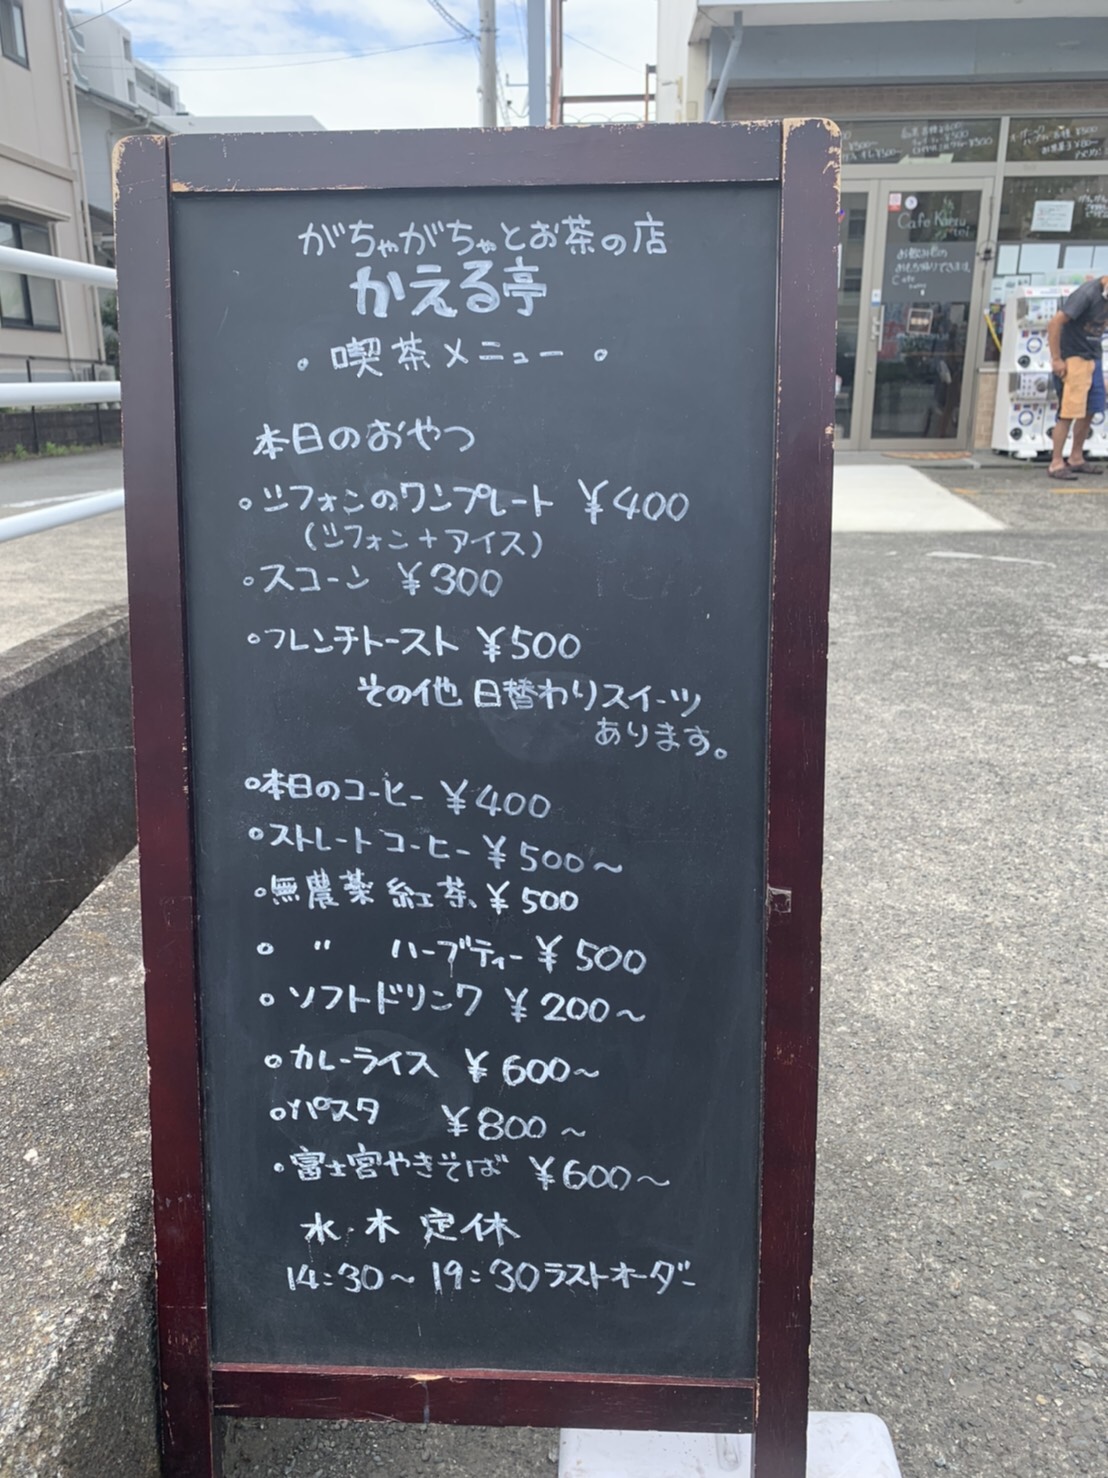 がちゃがちゃとお茶の店
かえる亭
。喫茶メニュー。
本日のおやつ
。シフォンのワンプレート ￥400
(シフォン+アイス)
。スコーン ￥300
。フレンチトースト ￥500
その他 日替わりスイーツ
あります。
。本日のコーヒー ￥400
。ストレートコーヒー ￥500〜
。無農薬 紅茶 ￥500
。 〃 ハーブティー ￥500
。ソフトドリンク ￥200〜
。カレーライス ￥600〜
。パスタ ￥800〜
。富士宮やきそば ￥600〜
水・木 定休
14:30〜19:30ラストオーダー
Cafe Kaeru
tei